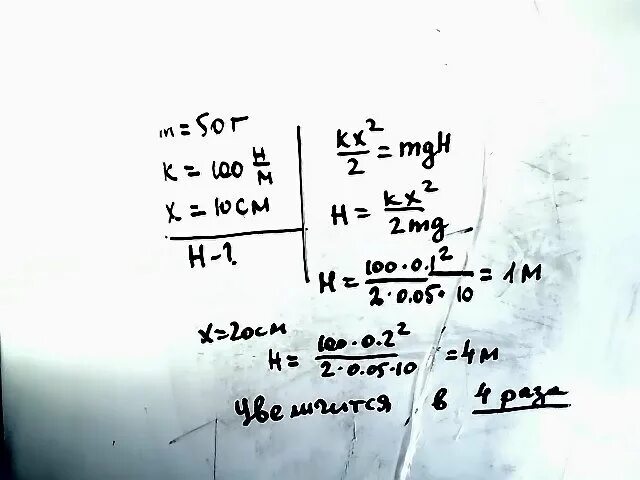 m = 50г
k = 100 Н/м
x = 10см
H - ?
kx²/2 = mgH
H = kx²/2mg
H = 100·0.1²/2·0.05·10 = 1м
x = 20см
H = 100·0.2²/2·0.05·10 = 4м
Увеличится в 4 раза